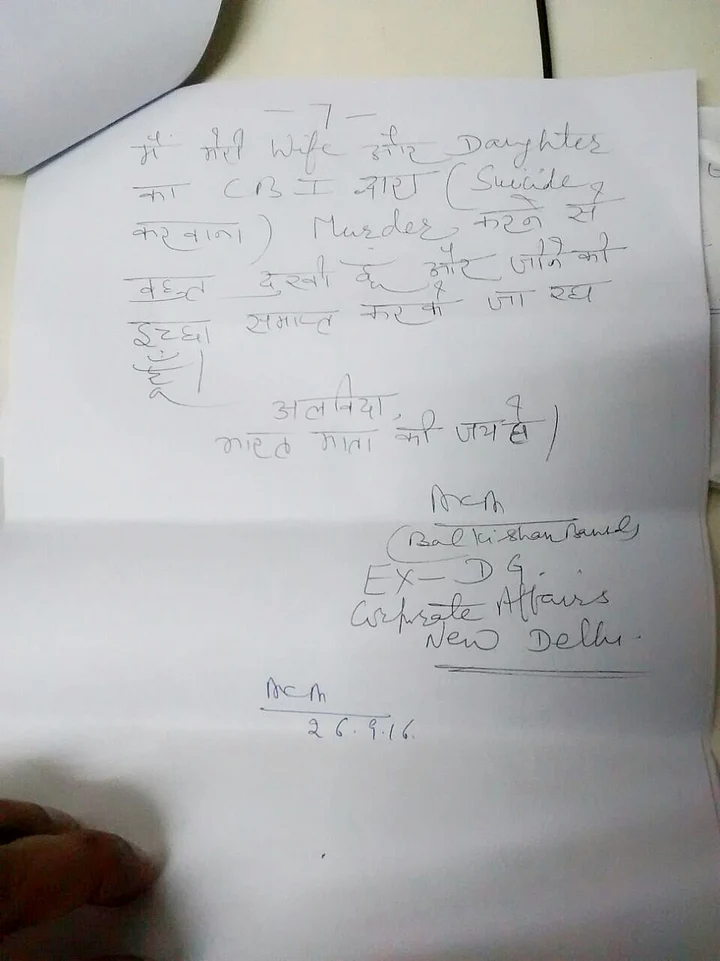 - 7 -
मैं मेरी Wife और Daughter
का CBI द्वारा (Suicide
करवाना) Murder करने से
बहुत दुखी हूँ और जीने की
इच्छा समाप्त करके जा रहा
हूँ।
अलविदा,
भारत माता की जय हो।
(Bal Kishan Bansal)
EX-DG.
Corporate Affairs
New Delhi.
26.9.16.